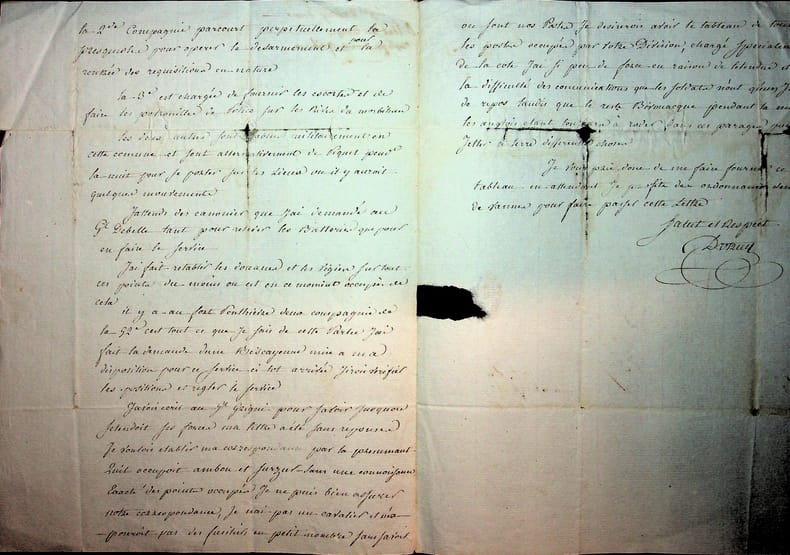 la 2de Compagnie parcourt perpetuellement la
presquisle pour operer le desarmement et pour la
rentrée des requisitions en nature
la 3e est chargée de fournir les escortes et de
faire les patrouilles de sur les rives du morbihan
les deux autres sont militairement en
cette commune et sont alternativement de Piquet pour
la nuit pour se porter sur les Lieux ou il y auroit
quelques mouvements
J'attends des canonier que J'ai demandé au
Gl Debelle tant pour relever les Batteries que pour
en faire le service
J'ai fait retablir les douanes et les vigies sur tout
ces points du moins ou est on ce moment occupée de
cela
il y a au fort Penthievre deux compagnie de
la 92e c'est tout ce que Je sais de cette Partie J'ai
fait la demande d'une Biscayenne mise a ma
disposition pour ce service si tot arrivée J'irois verifier
les positions et regler le service
J'ai ecris au Gl Grigni pour savoir Jusqu'ou
s'etendoit ses forces ma lettre a été sans reponse
Je voulois etablir ma correspondance par la presumant
qu'il occupoit ambon et surzur sans une connoissance
exacte des points occupés Je ne puis bien assurer
notre correspondance, Je n'ai pas un cavalier et
pouroit pas des fusiliers en petit nombre sans savoir
ou sont nos Postes Je desirerois avoir le tableau de tous
les postes occupés par votre Division, chargé specialement
de la cote J'ai si peu de force en raison de l'etendue et
la difficulté des communications que les soldats n'ont
de repos tandis que le reste Bivouacque pendant la nuit
les anglois etant toujours a roder dans ces parages pour
Jetter a terre differentes choses
Je vous prie donc de me faire fournir ce
tableau en attendant Je profite des ordonnances
de vannes pour faire passer cette Lettre
Salut et Respect